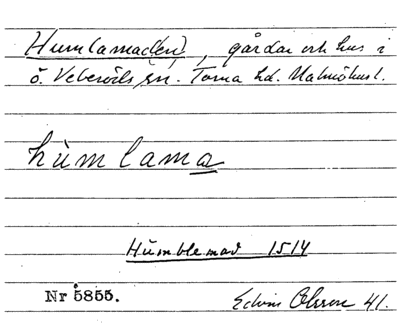 Humlamade(n), gårdar och hus i
ö. Veberöds sn. Torna hd. Malmöhus l.
hùmlama
Humblemad 1514
Nr 5855. Edvin Olsson 41.